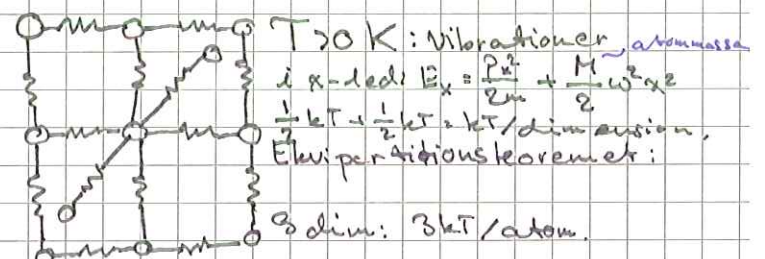 T>0 K: Vibrationer atommassa
i x-led: Eₓ = Pₓ²/2m + M/2 ω²x²
1/2 kT + 1/2 kT = kT/dimension,
Ekvipartitionsteoremet:
3 dim: 3kT/atom.